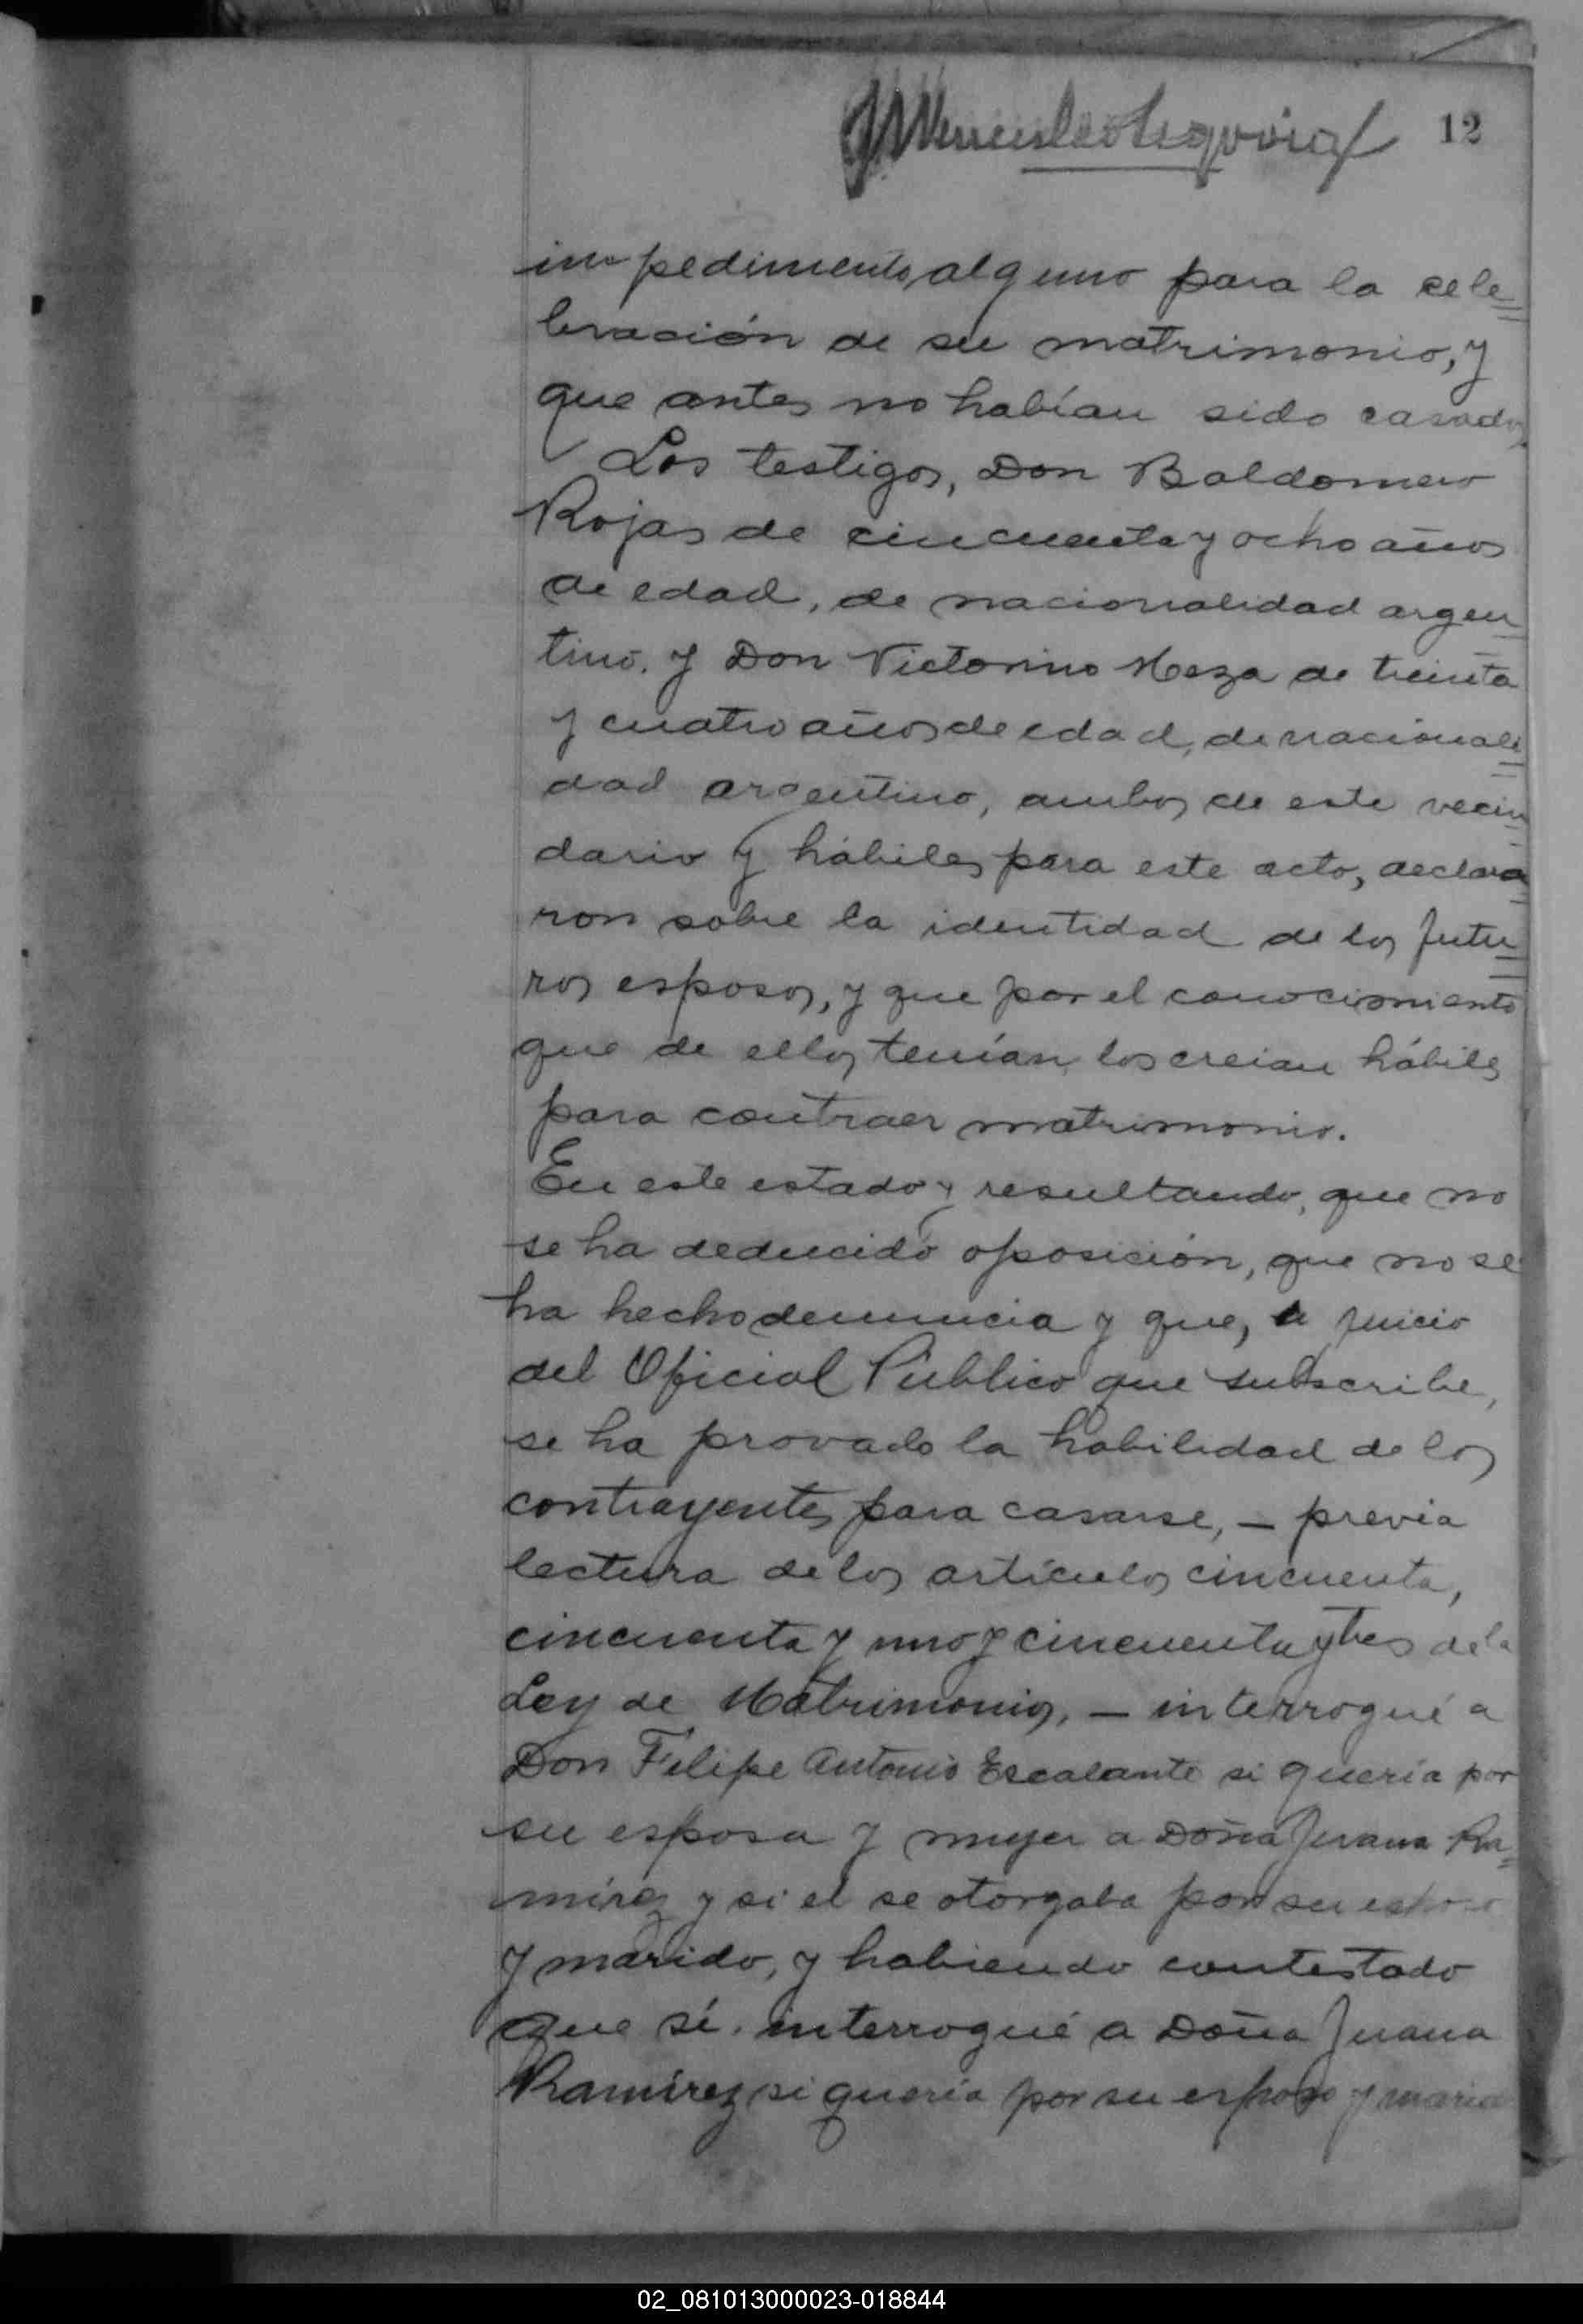 12
impedimento alguno para la cele=
bración de su matrimonio, y
que antes no habían sido casados
Los testigos, Don Baldomero
Rojas de cincuenta y ocho años
de edad, de nacionalidad argen=
tino. y Don Victorino Meza de treinta
y cuatro años de edad, de nacionali=
dad argentino, ambos de este vecin=
dario y hábiles para este acto, declara=
ron sobre la identidad de los futu=
ros esposos, y que por el conocimiento
que de ellos tenían los creian hábiles
para contraer matrimonio.
En este estado y resultando, que no
se ha deducido oposición, que no se
ha hecho denuncia y que, a juicio
del Oficial Público que subscribe,
se ha provado la habilidad de los
contrayentes para casarse, — previa
lectura de los artículos cincuenta,
cincuenta y uno y cincuenta y tres de la
Ley de Matrimonios, — interrogué a
Don Felipe Antonio Escalante si quería por
su esposa y mujer a Doña Juana Ra=
mírez y si el se otorgaba por su esposo
y marido, y habiendo contestado
que sí. interrogué a Doña Juana
Ramírez si quería por su esposo y marid
02_081013000023-018844